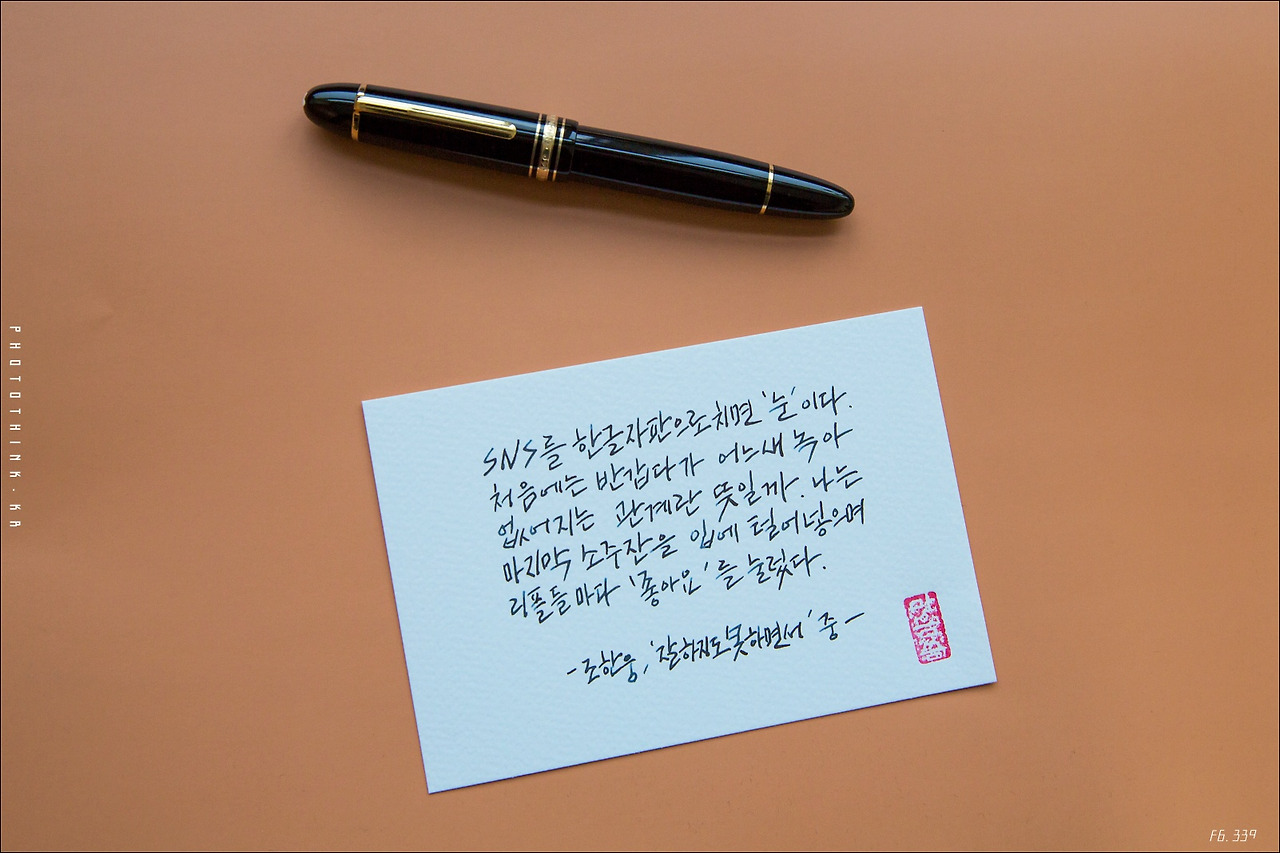 SNS를 한글자판으로치면 '눈'이다.
처음에는 반갑다가 어느새 녹아
없어지는 관계란 뜻일까. 나는
마지막 소주잔을 입에 털어넣으며
리플들마다 '좋아요'를 눌렀다.
- 조한웅, '잘하지도못하면서' 중 -
PHOTOTHINK.KR
FG. 339